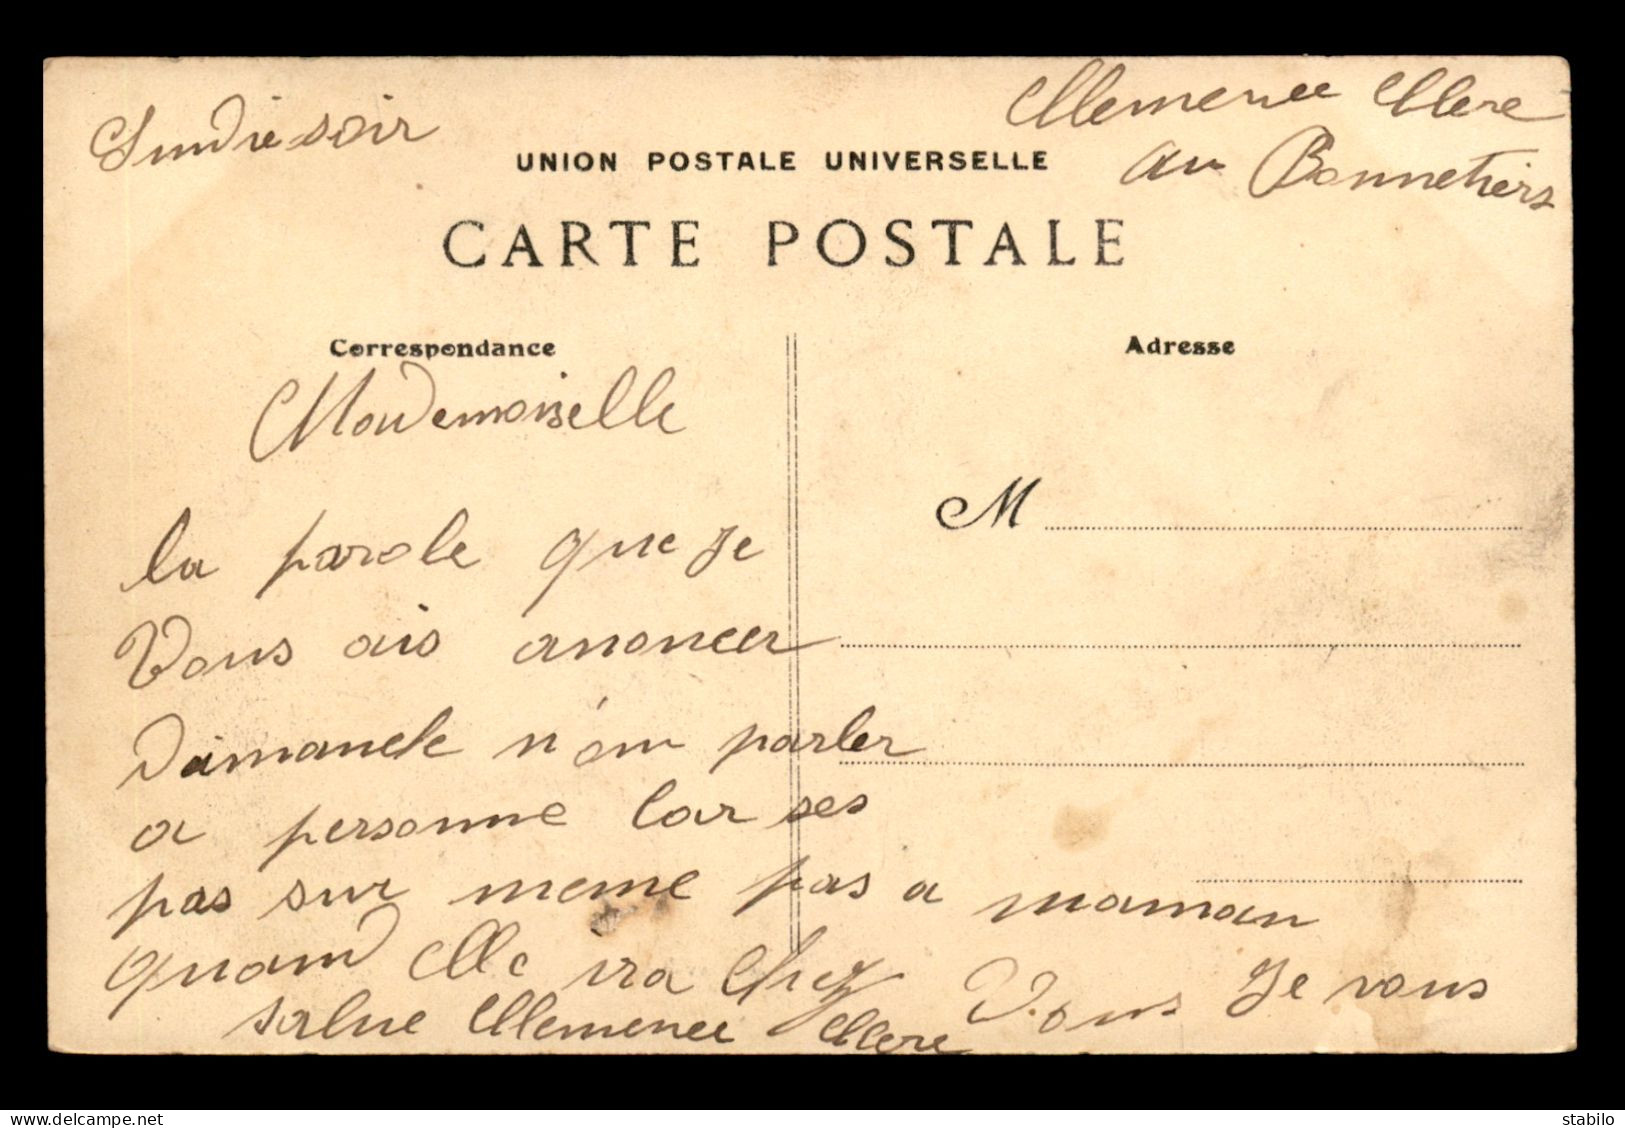 Lundie soir
Clemence Clere
au Bonnetiers
UNION POSTALE UNIVERSELLE
CARTE POSTALE
Correspondance
Adresse
Mademoiselle
M
la parole que je
Vous ais anoncer
Dimanche n'em parler
a personne Car ses
pas sur meme pas a maman
quand elle ira Chez Vous Je vous
salue Clemence Clere
delcampe.net
stabilo